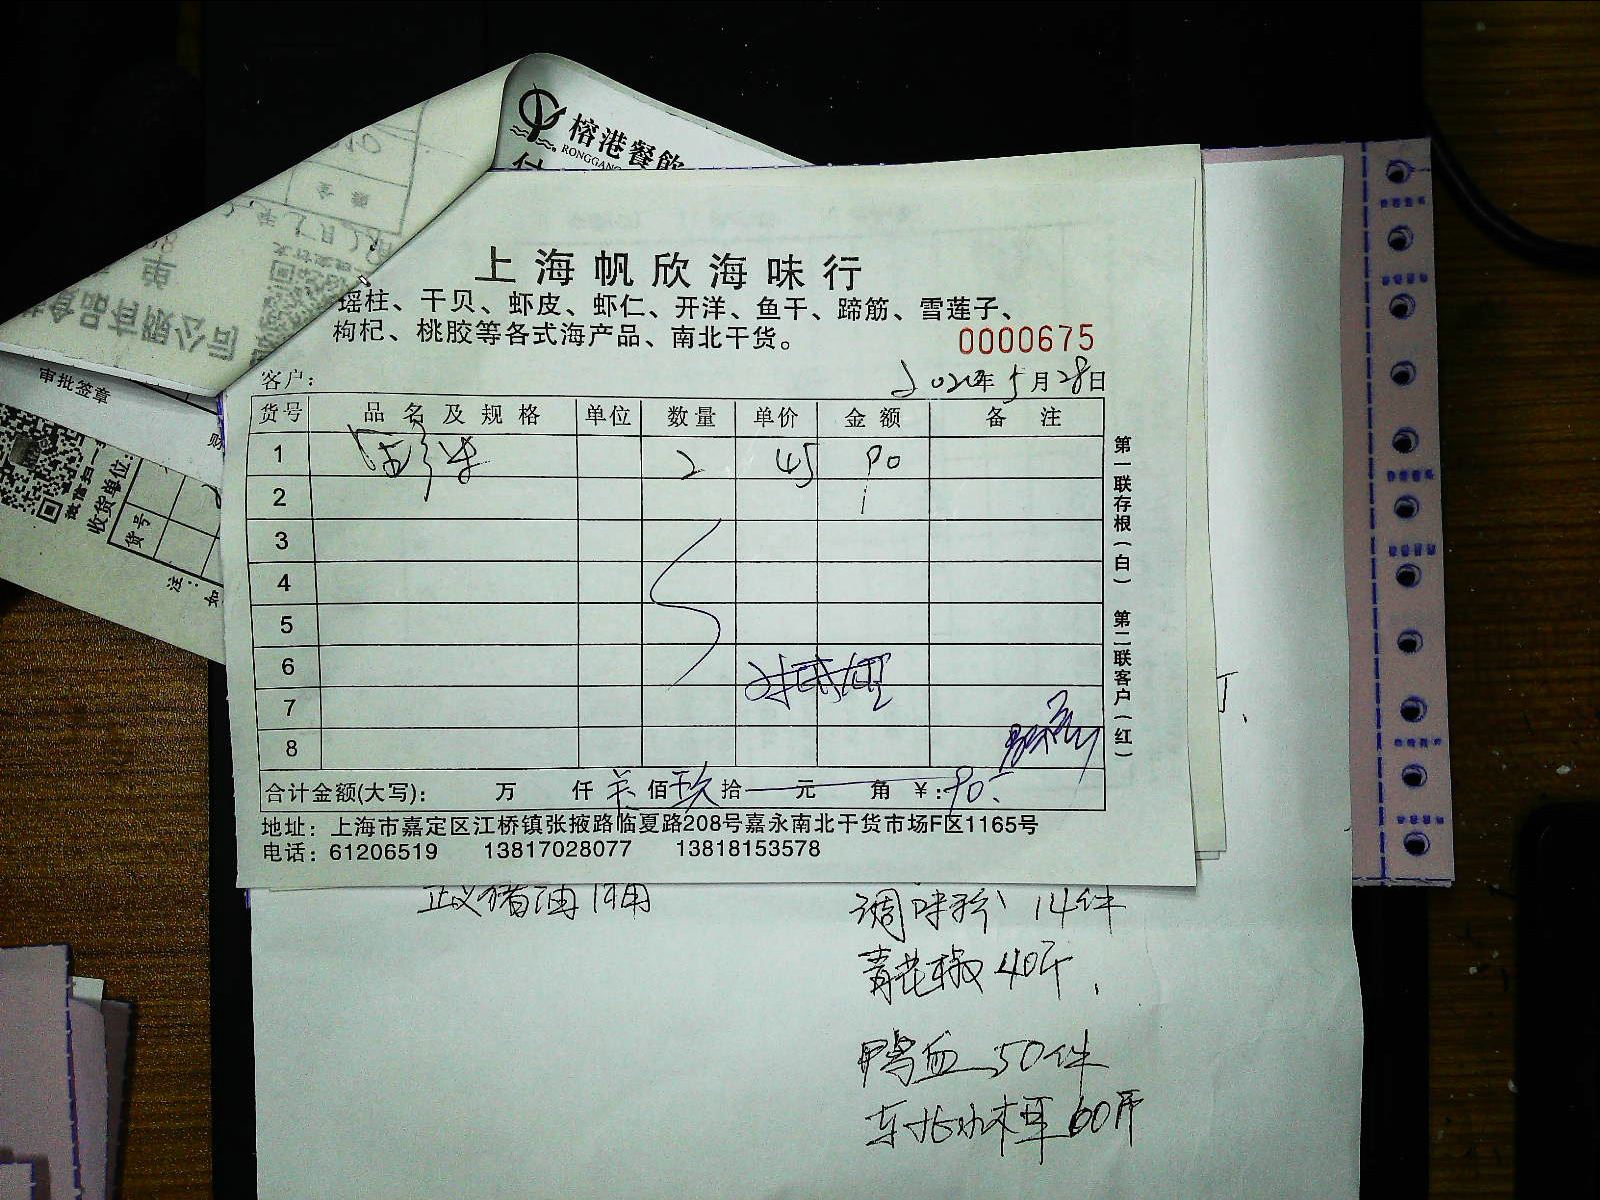 榕港餐飲
上海帆欣海味行
瑶柱、干贝、虾皮、虾仁、开洋、鱼干、蹄筋、雪莲子、
枸杞、桃胶等各式海产品、南北干货。
0000675
客户：
年5月28日
货号 品名及规格 单位 数量 单价 金额 备注
1 2 45 90
2
3
4
5
6
7
8
合计金额(大写)： 万 仟 佰玖拾 元 角 ￥：90.
地址：上海市嘉定区江桥镇张掖路临夏路208号嘉永南北干货市场F区1165号
电话：61206519 13817028077 13818153578
第一联存根(白) 第二联客户(红)
审批签章
收货单位：
货号
注：如
猪油1桶
调味粉 14件
青花椒 40斤
鸭血 50件
东北小木耳 60斤